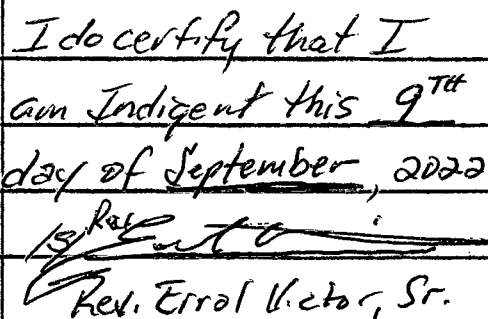 I do certify that I
am Indigent this 9TH
day of September, 2022
/S/ Rev.
Rev. Errol Victor, Sr.